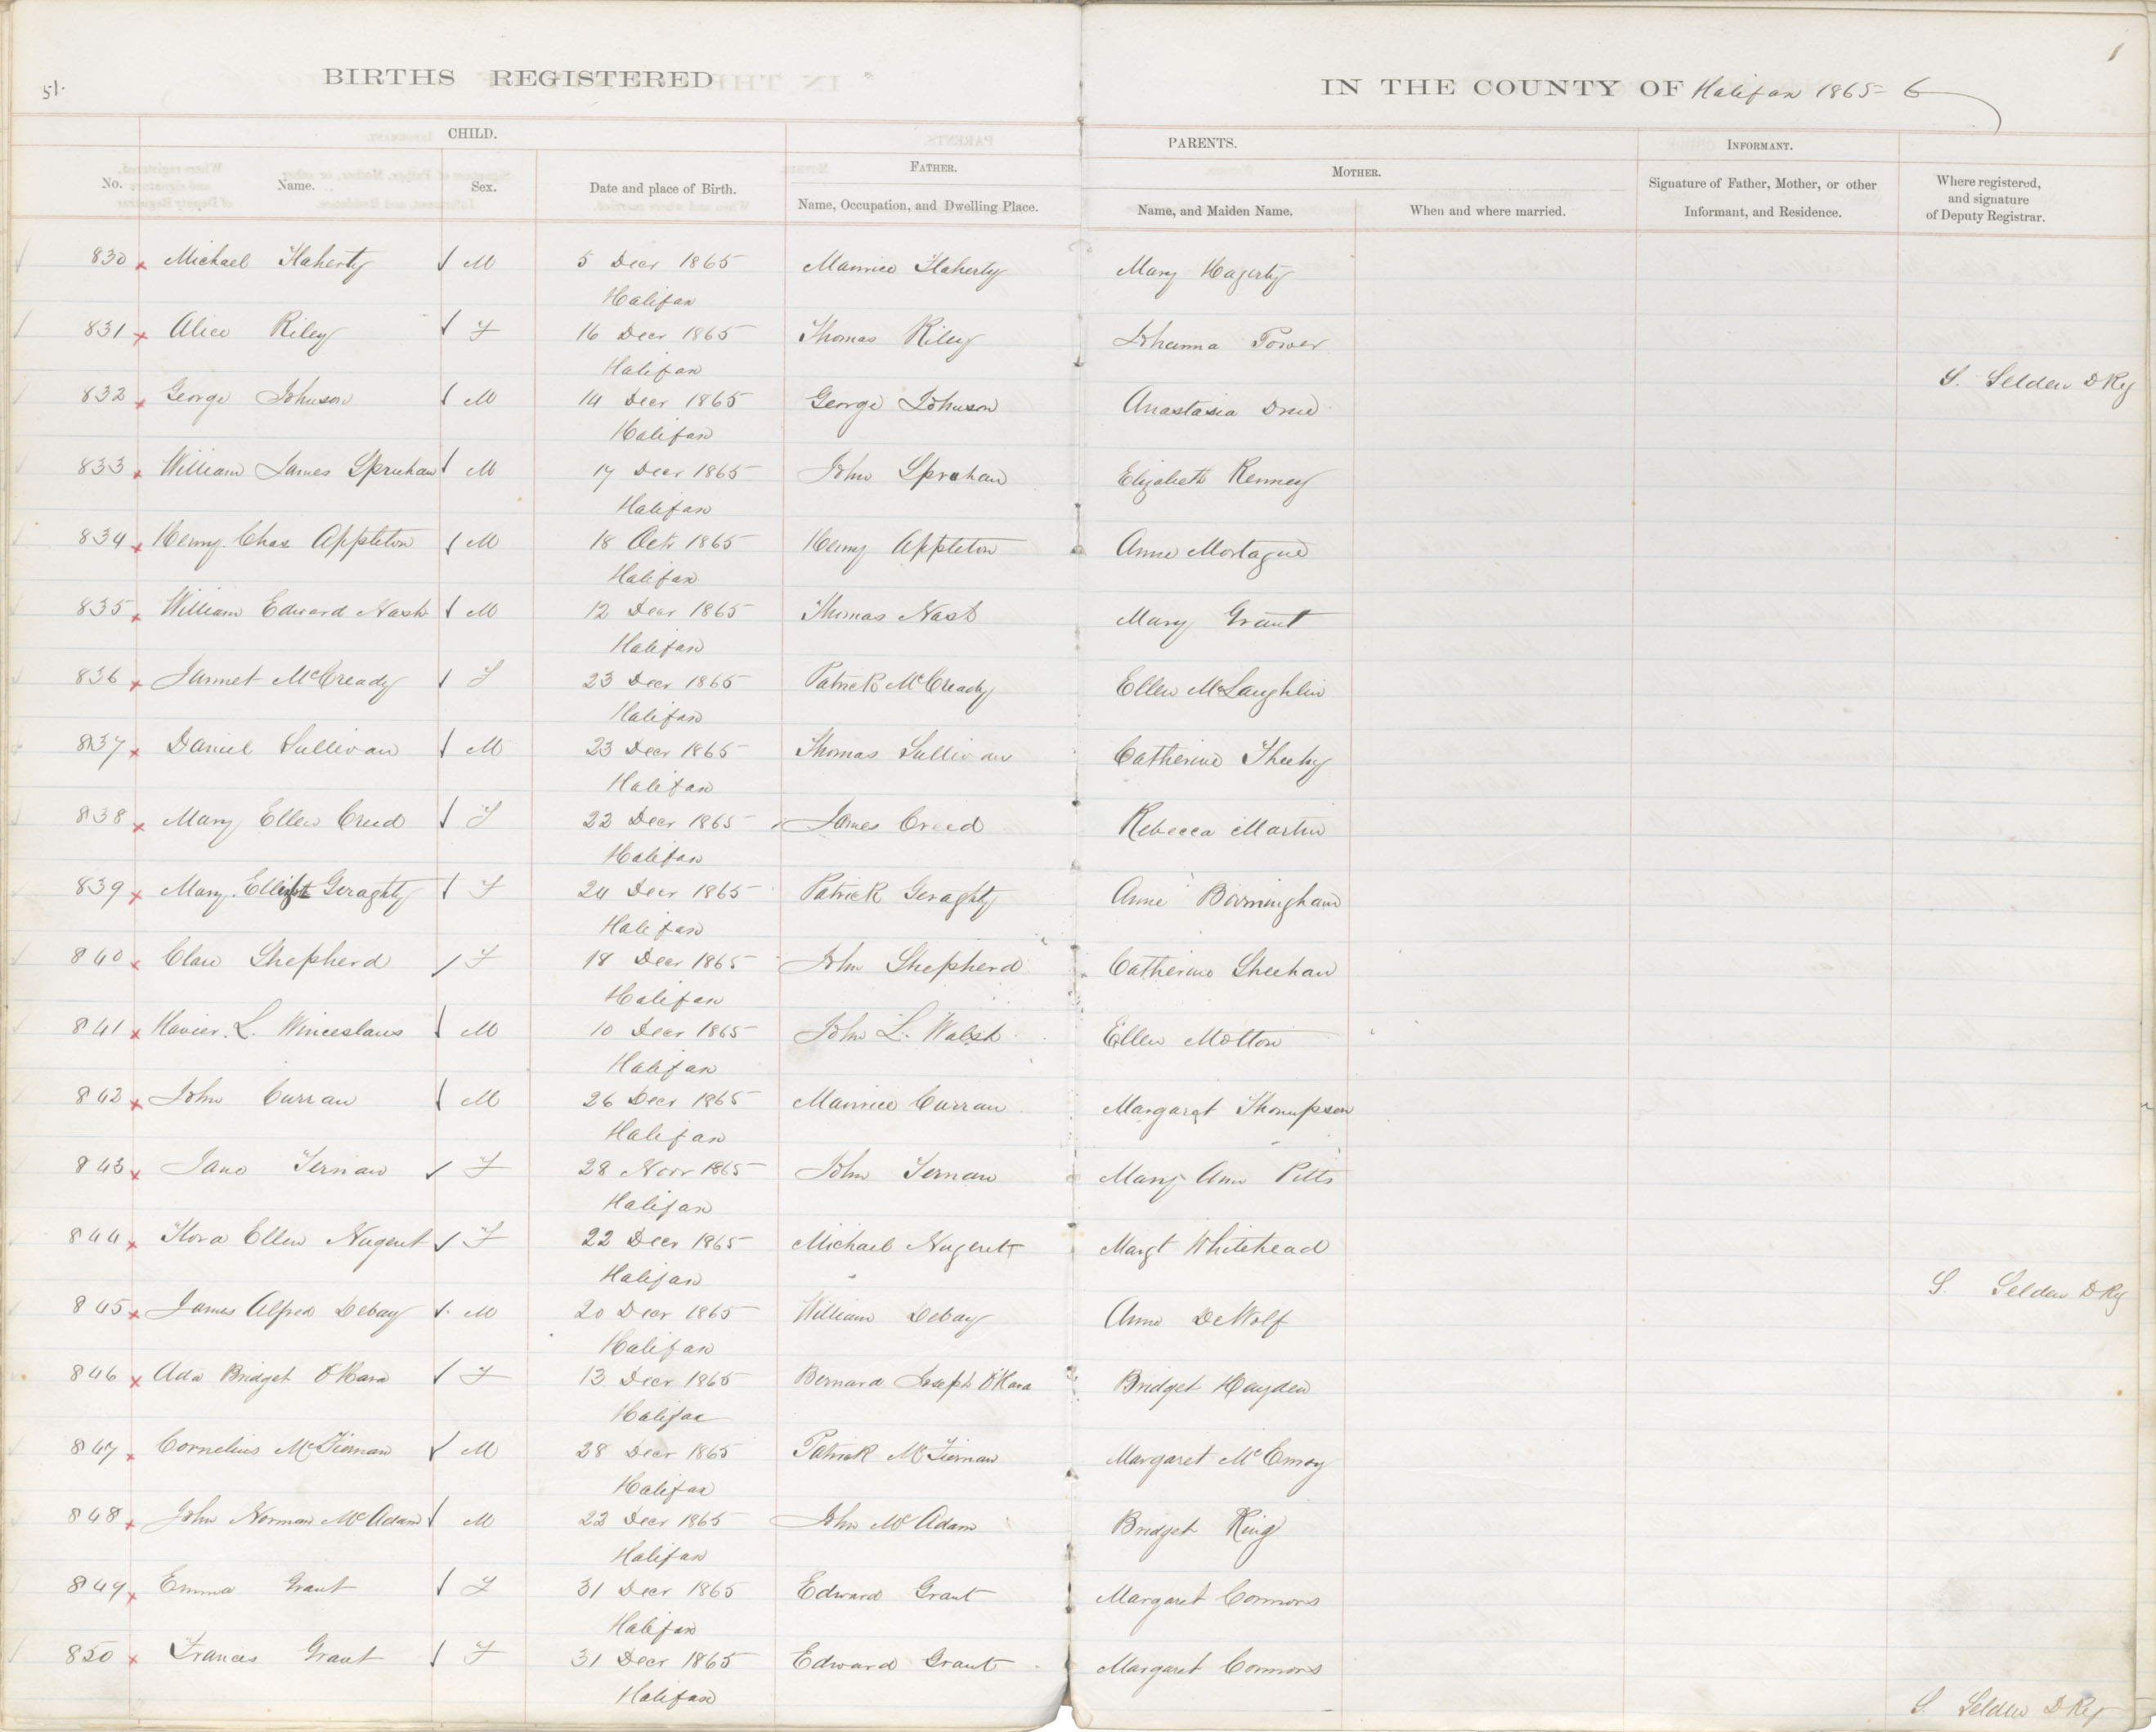 51.
BIRTHS REGISTERED
IN THE COUNTY OF Halifax 1865-6
1
CHILD.
PARENTS.
INFORMANT.
No.
Name.
Sex.
Date and place of Birth.
FATHER.
Name, Occupation, and Dwelling Place.
MOTHER.
Name, and Maiden Name.
When and where married.
Signature of Father, Mother, or other
Informant, and Residence.
Where registered,
and signature
of Deputy Registrar.
830 x Michael Flaherty M 5 Decr 1865 Maurice Flaherty Mary Hagerty
Halifax
831 x Alice Riley F 16 Decr 1865 Thomas Riley Johanna Power
Halifax
S. Selden D Reg
832 x George Johnson M 14 Decr 1865 George Johnson Anastasia
Halifax
833 x William James Spruhan M 17 Decr 1865 John Spruhan Elizabeth Kenney
Halifax
834 x Henry Chas Appleton M 18 Octr 1865 Henry Appleton Anne Mortague
Halifax
835 x William Edward Nash M 12 Decr 1865 Thomas Nash Mary Grant
Halifax
836 x Jannet McCready F 23 Decr 1865 Patrick McCready Ellen McLaughlin
Halifax
837 x Daniel Sullivan M 23 Decr 1865 Thomas Sullivan Catherine Sheehy
Halifax
838 x Mary Ellen Creed F 22 Decr 1865 James Creed Rebecca Martin
Halifax
839 x Mary Geraghty F 24 Decr 1865 Patrick Geraghty Anne Birmingham
Halifax
840 x Clara Shepherd F 18 Decr 1865 John Shepherd Catherine Sheehan
Halifax
841 x Xavier. L. Winceslaus M 10 Decr 1865 John L. Walsh Ellen Motton
Halifax
842 x John Curran M 26 Decr 1865 Maurice Curran Margaret Thompson
Halifax
843 x Jane Ternan F 28 Novr 1865 John Ternan Mary Ann Pitts
Halifax
844 x Flora Ellen Nugent F 22 Decr 1865 Michael Nugent Margt Whitehead
Halifax
S. Selden D Reg
845 x James Alfred Debay M 20 Decr 1865 William Debay Anne DeWolf
Halifax
846 x Ada Bridget O'Hara F 13 Decr 1865 Bernard Joseph O'Hara Bridget Hayden
Halifax
847 x Cornelius McTiernan M 28 Decr 1865 Patrick McTiernan Margaret McEnroy
Halifax
848 x John Norman McAdam M 22 Decr 1865 John McAdam Bridget King
Halifax
849 x Emma Grant F 31 Decr 1865 Edward Grant Margaret Connors
Halifax
850 x Frances Grant F 31 Decr 1865 Edward Grant Margaret Connors
Halifax
S. Selden D Reg